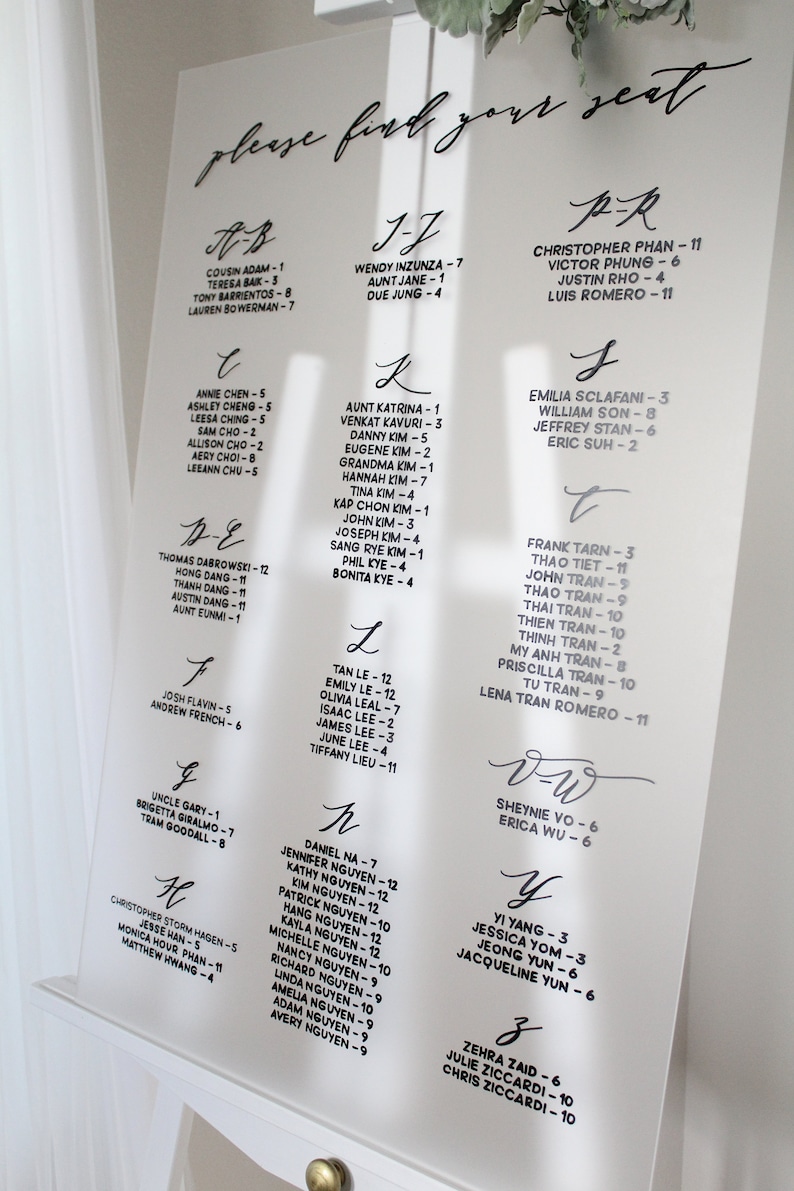 please find your seat
A-B
COUSIN ADAM - 1
TERESA BAIK - 3
TONY BARRIENTOS - 8
LAUREN BOWERMAN - 7
C
ANNIE CHEN - 5
ASHLEY CHENG - 5
LEESA CHING - 5
SAM CHO - 2
ALLISON CHO - 2
AERY CHOI - 8
LEEANN CHU - 5
D-E
THOMAS DABROWSKI - 12
HONG DANG - 11
THANH DANG - 11
AUSTIN DANG - 11
AUNT EUNMI - 1
F
JOSH FLAVIN - 5
ANDREW FRENCH - 6
G
UNCLE GARY - 1
BRIGETTA GIRALMO - 7
TRAM GOODALL - 8
H
CHRISTOPHER STORM HAGEN - 5
JESSE HAN - 5
MONICA HOUR PHAN - 11
MATTHEW HWANG - 4
I-J
WENDY INZUNZA - 7
AUNT JANE - 1
DUE JUNG - 4
K
AUNT KATRINA - 1
VENKAT KAVURI - 3
DANNY KIM - 5
EUGENE KIM - 2
GRANDMA KIM - 1
HANNAH KIM - 7
TINA KIM - 4
KAP CHON KIM - 1
JOHN KIM - 3
JOSEPH KIM - 4
SANG RYE KIM - 1
PHIL KYE - 4
BONITA KYE - 4
L
TAN LE - 12
EMILY LE - 12
OLIVIA LEAL - 7
ISAAC LEE - 2
JAMES LEE - 3
JUNE LEE - 4
TIFFANY LIEU - 11
N
DANIEL NA - 7
JENNIFER NGUYEN - 12
KATHY NGUYEN - 12
KIM NGUYEN - 12
PATRICK NGUYEN - 10
HANG NGUYEN - 12
KAYLA NGUYEN - 12
MICHELLE NGUYEN - 10
NANCY NGUYEN - 9
RICHARD NGUYEN - 9
LINDA NGUYEN - 10
AMELIA NGUYEN - 9
ADAM NGUYEN - 9
AVERY NGUYEN - 9
P-R
CHRISTOPHER PHAN - 11
VICTOR PHUNG - 6
JUSTIN RHO - 4
LUIS ROMERO - 11
S
EMILIA SCLAFANI - 3
WILLIAM SON - 8
JEFFREY STAN - 6
ERIC SUH - 2
T
FRANK TARN - 3
THAO TIET - 11
JOHN TRAN - 9
THAO TRAN - 9
THAI TRAN - 10
THIEN TRAN - 10
THINH TRAN - 2
MY ANH TRAN - 8
PRISCILLA TRAN - 10
TU TRAN - 9
LENA TRAN ROMERO - 11
V-W
SHEYNIE VO - 6
ERICA WU - 6
Y
YI YANG - 3
JESSICA YOM - 3
JEONG YUN - 6
JACQUELINE YUN - 6
Z
ZEHRA ZAID - 6
JULIE ZICCARDI - 10
CHRIS ZICCARDI - 10